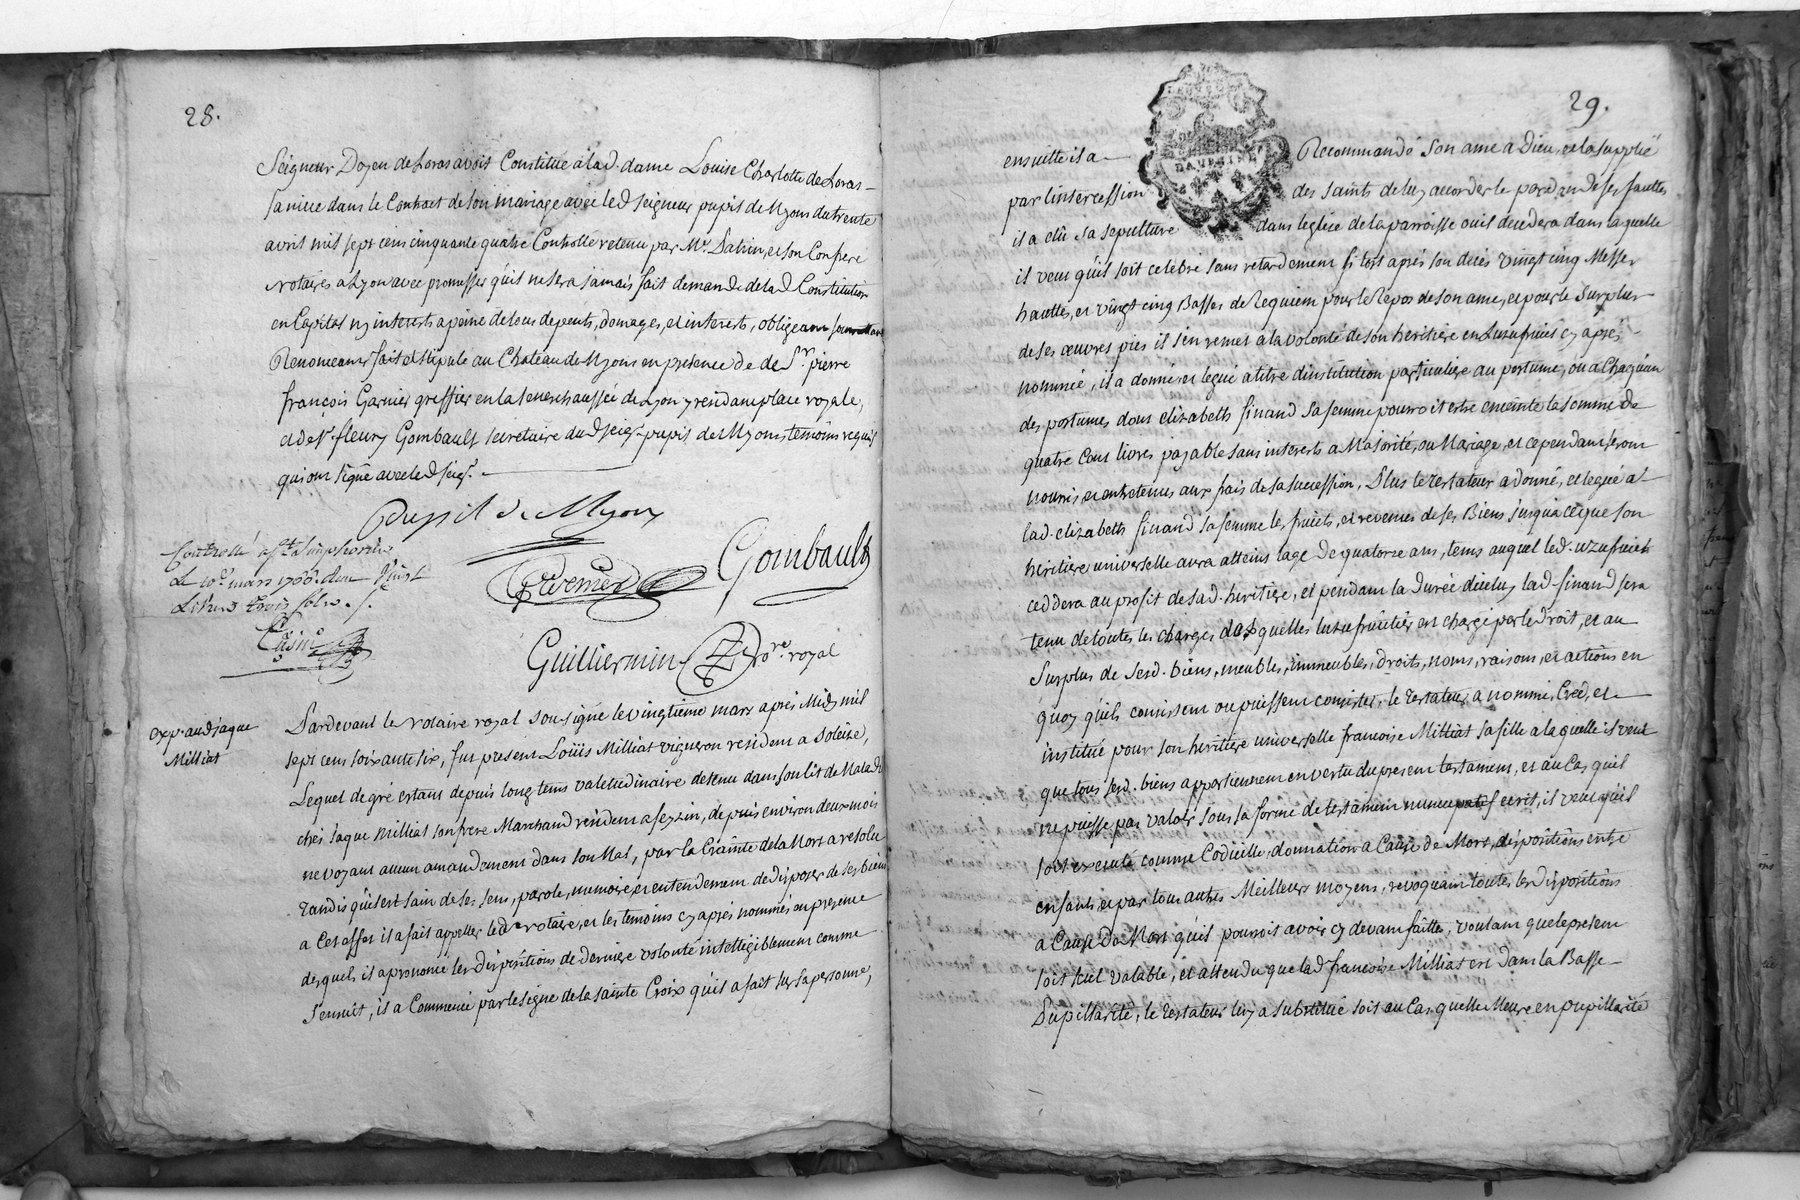 28.
Seigneur Doyen de Loras avoit Constitué a lad. dame Louise Charlotte de Loras
sa niece dans le Contract de son mariage avec led seigneur pupil de Myons du trente
avril mil sept cens cinquante quatre Controllé retenu par Me. Patrin, et son Confrere
notaires a Lyon avec promesses qu'il ne sera jamais fait demande de lad Constitution
en Capital ny interests a peine de tous depents, domages, et interests, obligeant
Renonceant fait et stipulé au Chateau de Myons en presence de de Sr. pierre
françois Garnier greffier en la senechaussée de Lyon y residant place royale,
et de Sr. fleury Gombault secretaire dud seigr. pupil de Myons temoins requis
qui ont signé avec led seigr.
Dupil de Myons
Gombault
Controllé a St. Simphorien
Le mars 1766. Reçu Vingt
Livres trois sols
Guilliermin No.re royal
exp. aud Jaque
Milliat
Pardevant le notaire royal soussigné le vingtieme mars après Midy mil
sept cens soixante six, fut present Loüis Milliat vigneron resident a Soleize,
Lequel de gre estant depuis longtems valetudinaire detenu dans son lit de Malade
chés Jaque Milliat son frere Marchand résident a feyzin, depuis environ deux mois
ne voyant aucun amandement dans son Mal, par la Crainte de la Mort a resolu
tandis qu'il est sain de ses sens, parole, memoire et entendement de disposer de ses biens
a Cet effet il a fait appeller led notaire, et les temoins cy après nommés en presence
desquels il a prononcé les dispositions de derniere volonté intelligiblement comme
s'ensuit, il a Commencé par le signe de la sainte Croix qu'il a fait sur sa personne,
29.
ensuitte il a Recommandé son ame a Dieu, et la supplié
par l'intercession des saints de luy accorder le pardon de ses fauttes
il a élû sa sepulture dans leglise de la parroisse ou il decedera dans laquelle
il veut qu'il soit celebré sans retardement si tost après son dècès vingt cinq Messes
hauttes, et vingt cinq Basses de Requiem pour le Repos de son ame, et pour le surplus
de ses œuvres pies il s'en remet a la volonté de son heritiere en Luzufruict cy après
nommée, il a donné et legué a titre d'institution particuliere au portume, ou a Chaqu'un
des portumes dont elizabeth finand sa femme pourroit estre enceinte la somme de
quatre Cent livres payable sans interests a Majorité, ou Mariage, et cependant seront
nourris et entretenus aux frais de sa succession, Plus le testateur a donné, et legué a
lad. elizabeth finand sa femme les fruits, et revenus de ses Biens jusqu'a ce que son
heritiere universelle aura atteint lage de quatorze ans, tems auquel led. uzufruict
ceddera au profit de sad. heritiere, et pendant la durée d'iceluy lad finand sera
tenu de toutes les charges desquelles luzufruitier est chargé par le droit, et au
surplus de sesd. biens, meubles, immeubles, droits, noms, raisons, et actions en
quoy qu'ils consistent ou puissent consister, le testateur a nommé, Créé, et
institué pour son heritiere universelle francoise Milliat sa fille a laquelle il veut
que tous sesd. biens appartiennent en vertu du present testament, et au Cas qu'il
ne puisse pas valoir sous la forme de testament nuncupatif ecrit, il veut qu'il
soit executé comme Codicille, donnation a Cause de Mort, dispositions entre
enfants et par tous autres Meilleurs moyens, revoquant toutes les dispositions
a Cause de Mort qu'il pourroit avoir cy devant faittes, voulant que le present
soit seul valable, et attendu que lad francoise Milliat est dans la Basse
Pupillarité, le testateur luy a substitué soit au Cas quelle Meure en pupillarité